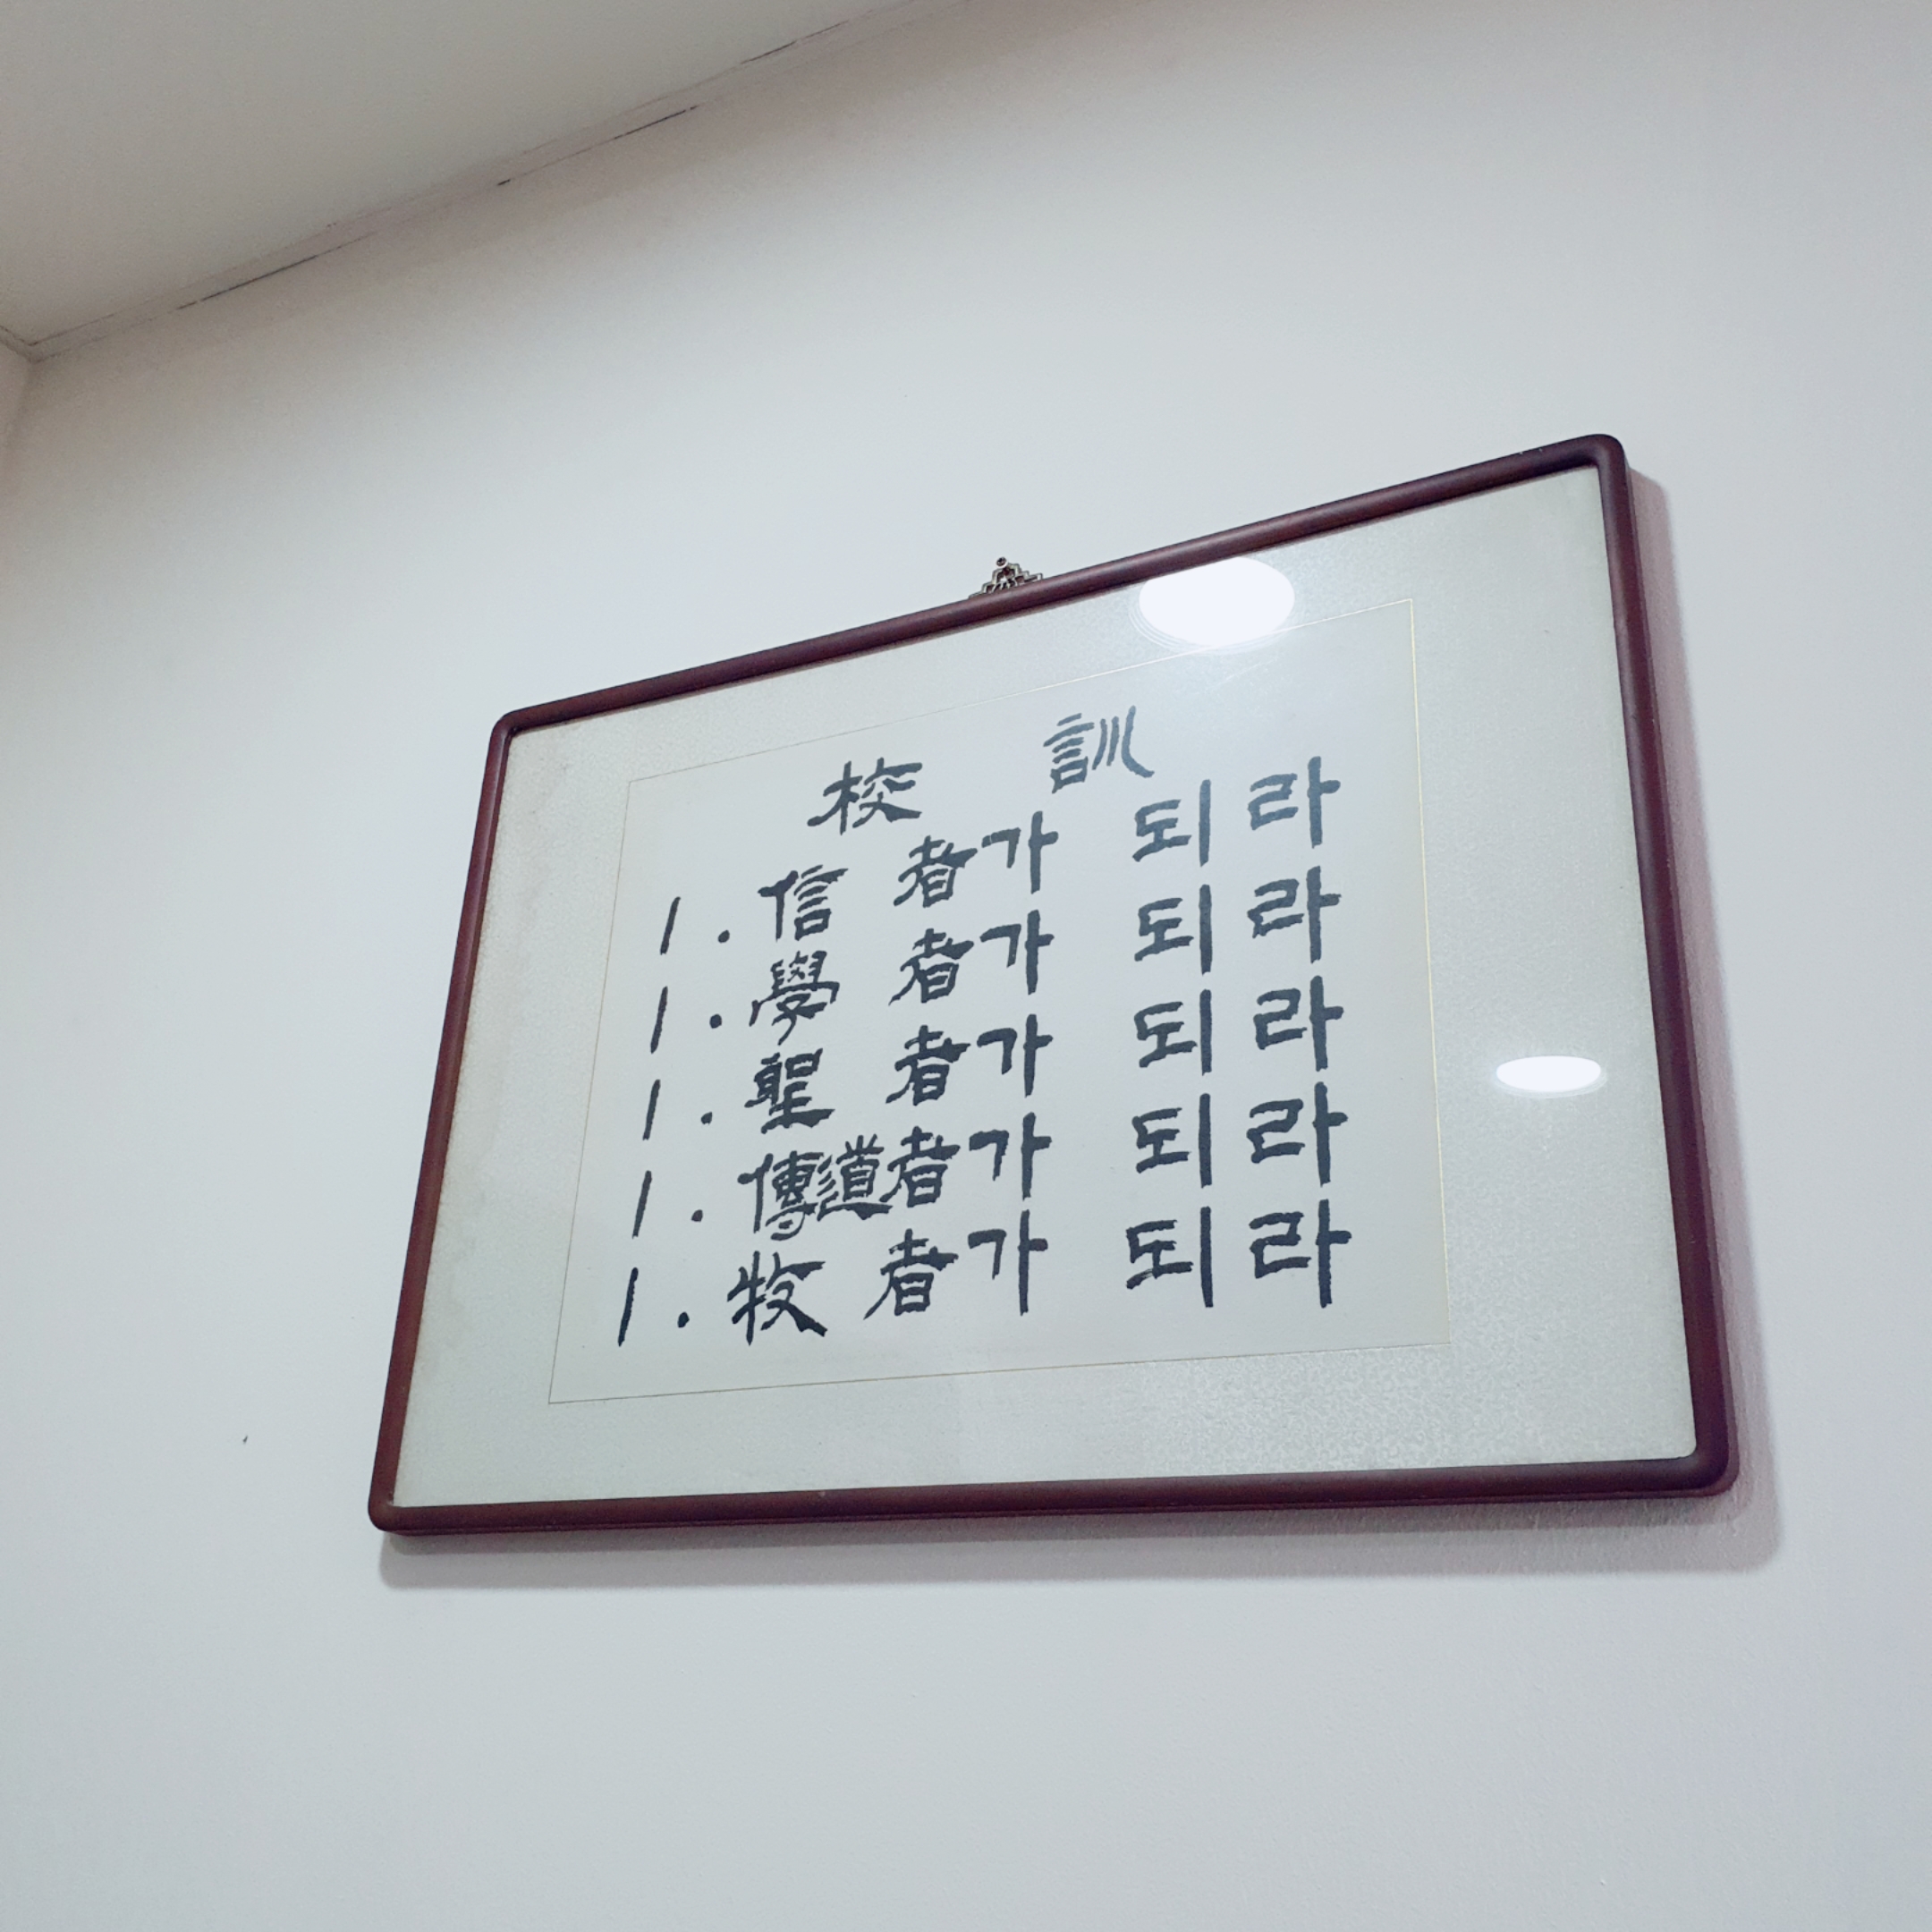 校 訓
1. 信 者가 되라
1. 學 者가 되라
1. 聖 者가 되라
1. 傳道者가 되라
1. 牧 者가 되라